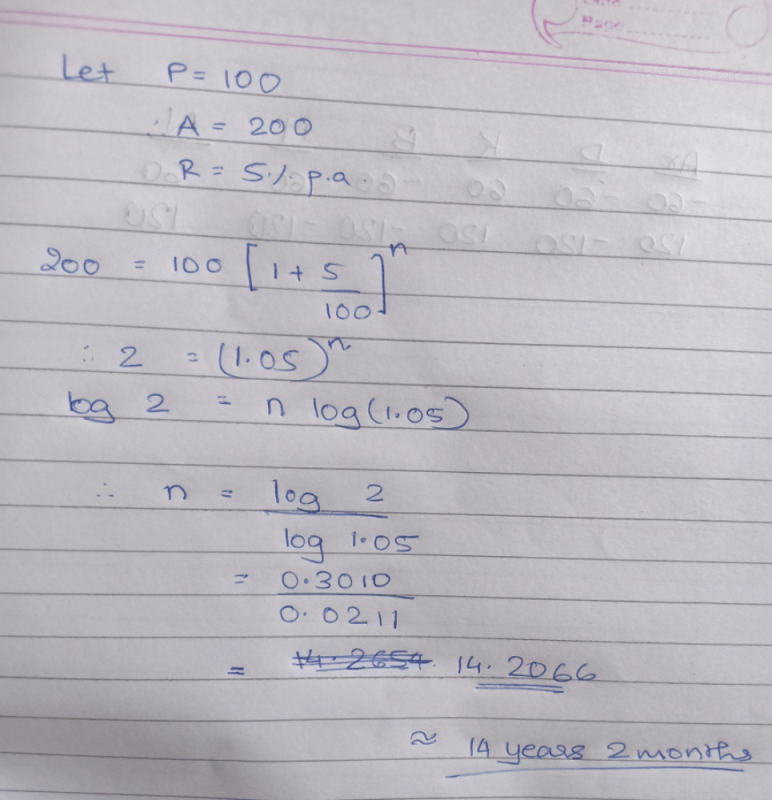 Page
Let P = 100
A = 200
R = 5 % p.a
200 = 100 [1 + 5/100]^n
∴ 2 = (1.05)^n
log 2 = n log (1.05)
∴ n = log 2 / log 1.05
= 0.3010 / 0.0211
= 14.2654 14.2066
≈ 14 years 2 months